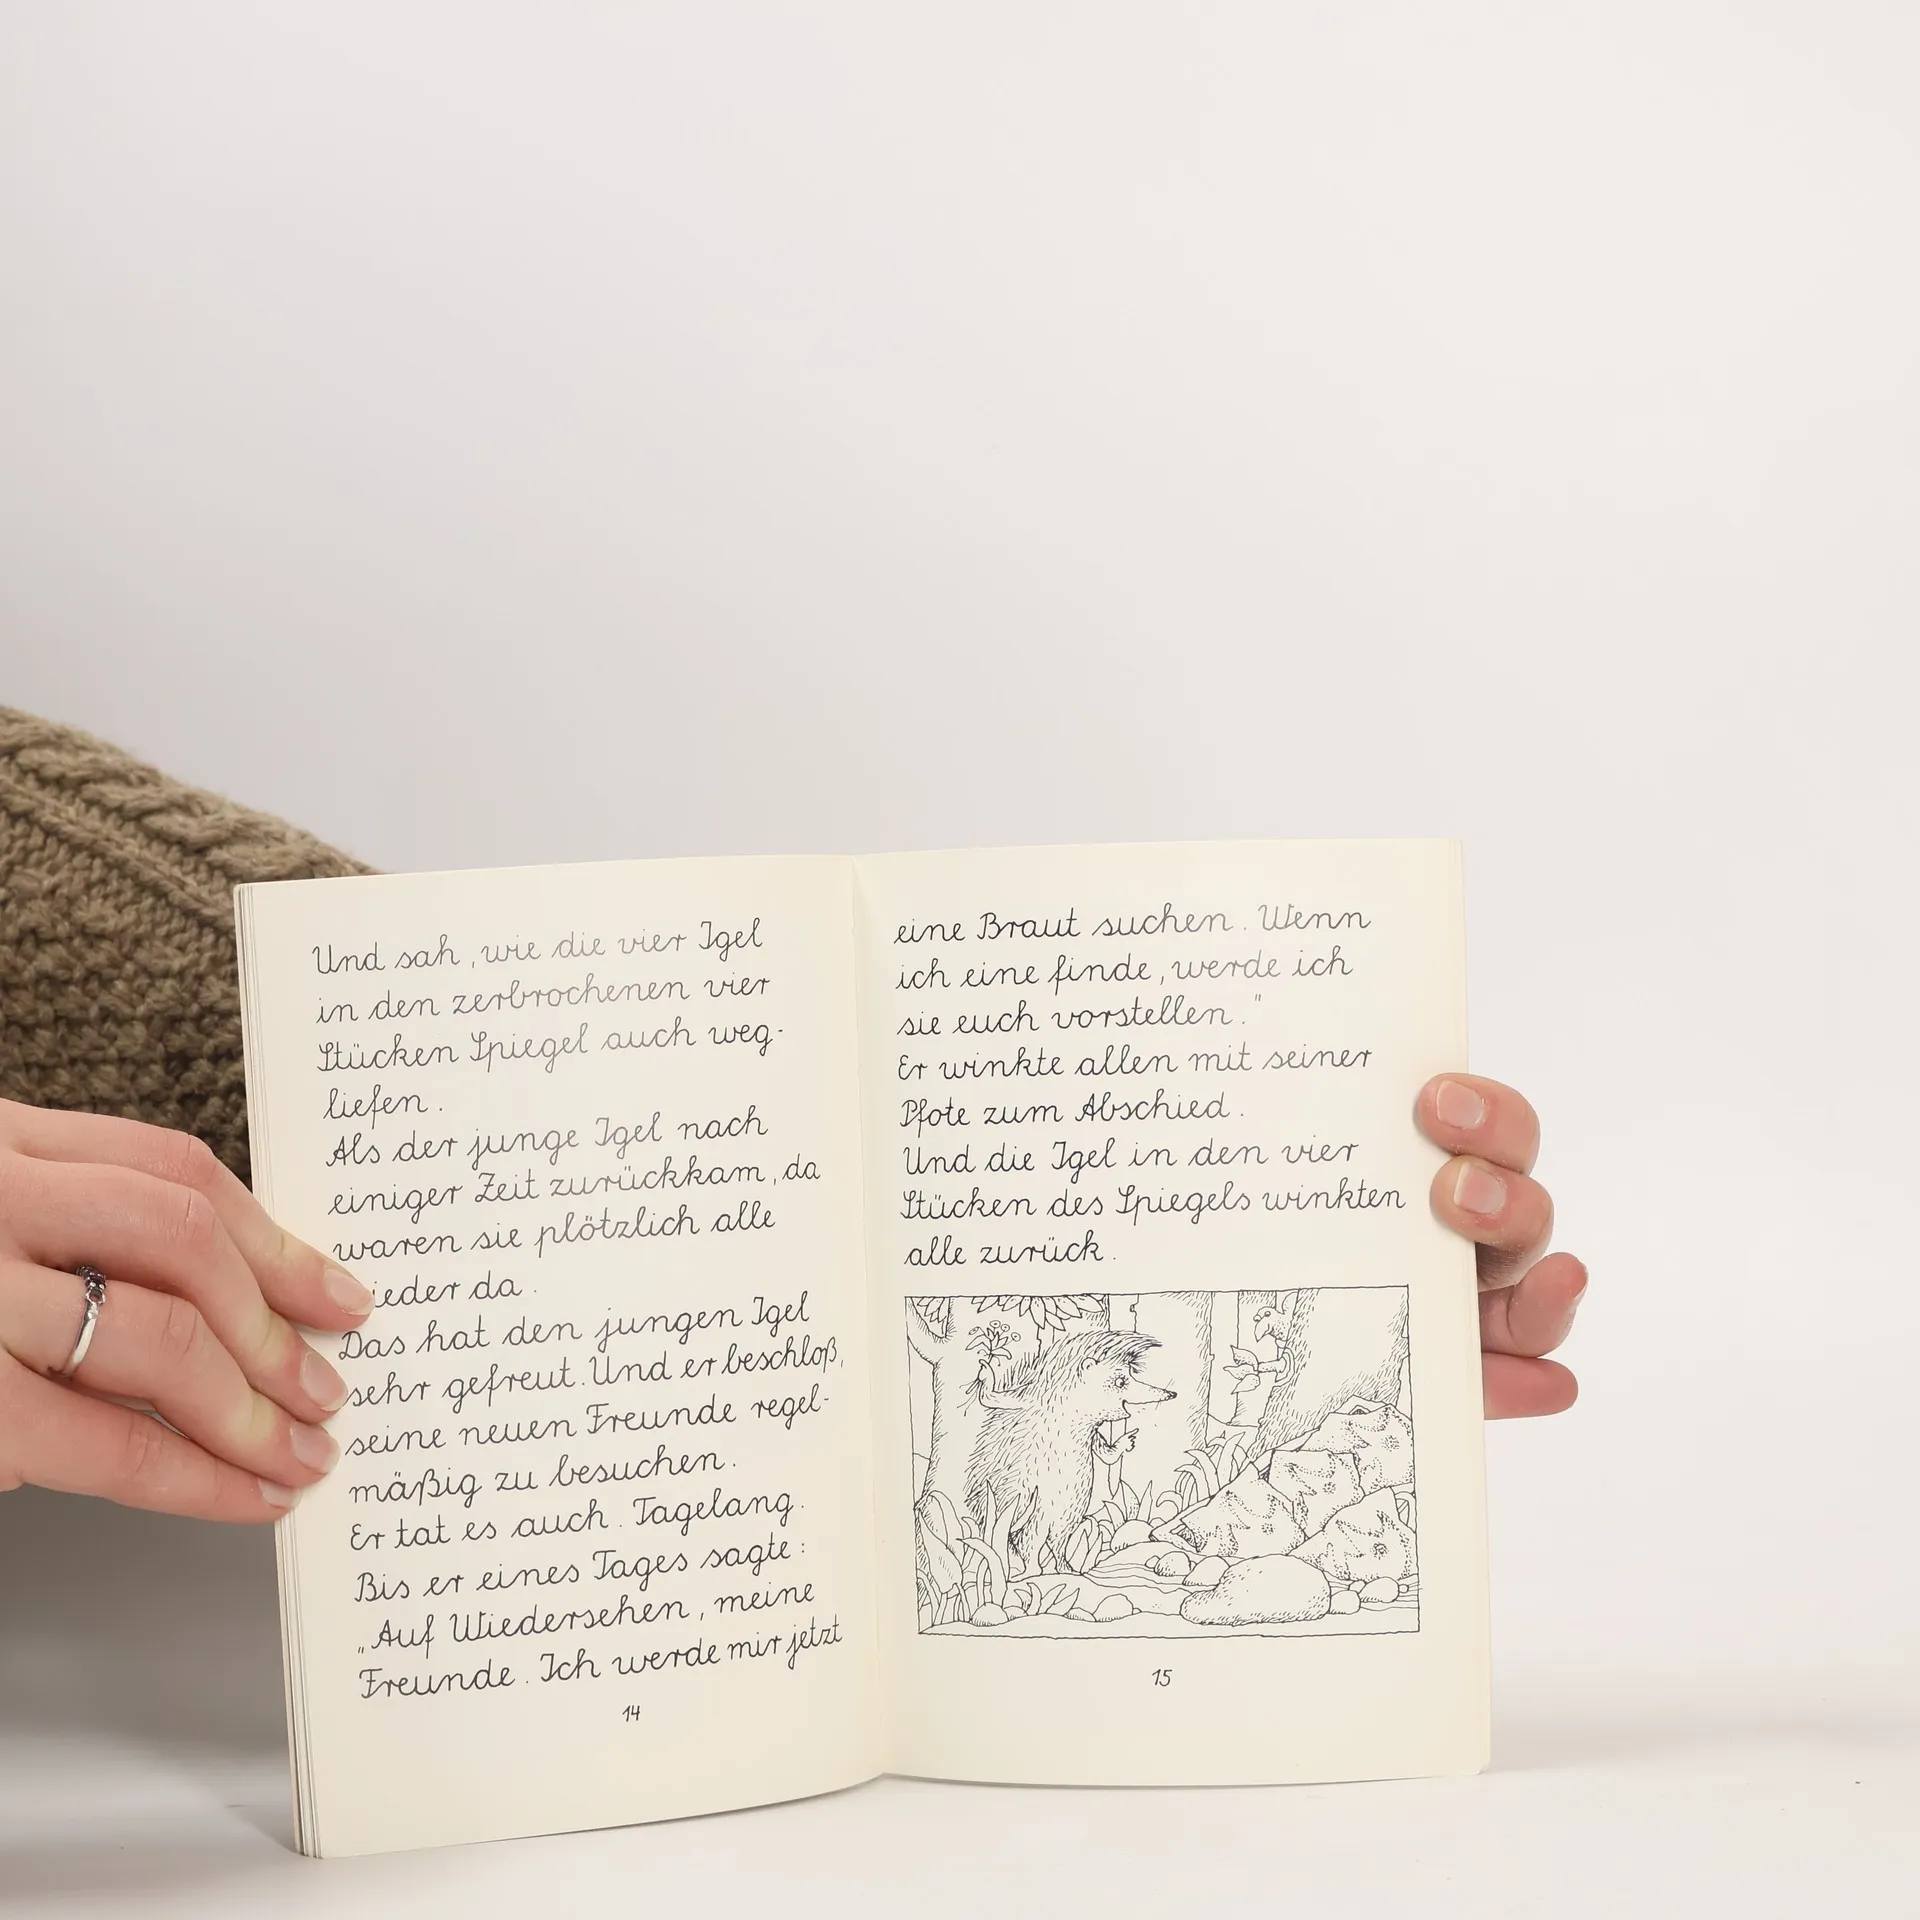 Und sah, wie die vier Igel
in den zerbrochenen vier
Stücken Spiegel auch weg-
liefen.
Als der junge Igel nach
einiger Zeit zurückkam, da
waren sie plötzlich alle
ieder da.
Das hat den jungen Igel
sehr gefreut. Und er beschloß,
seine neuen Freunde regel-
mäßig zu besuchen.
Er tat es auch. Tagelang.
Bis er eines Tages sagte:
„Auf Wiedersehen, meine
Freunde. Ich werde mir jetzt
14
eine Braut suchen. Wenn
ich eine finde, werde ich
sie euch vorstellen."
Er winkte allen mit seiner
Pfote zum Abschied.
Und die Igel in den vier
Stücken des Spiegels winkten
alle zurück.
15